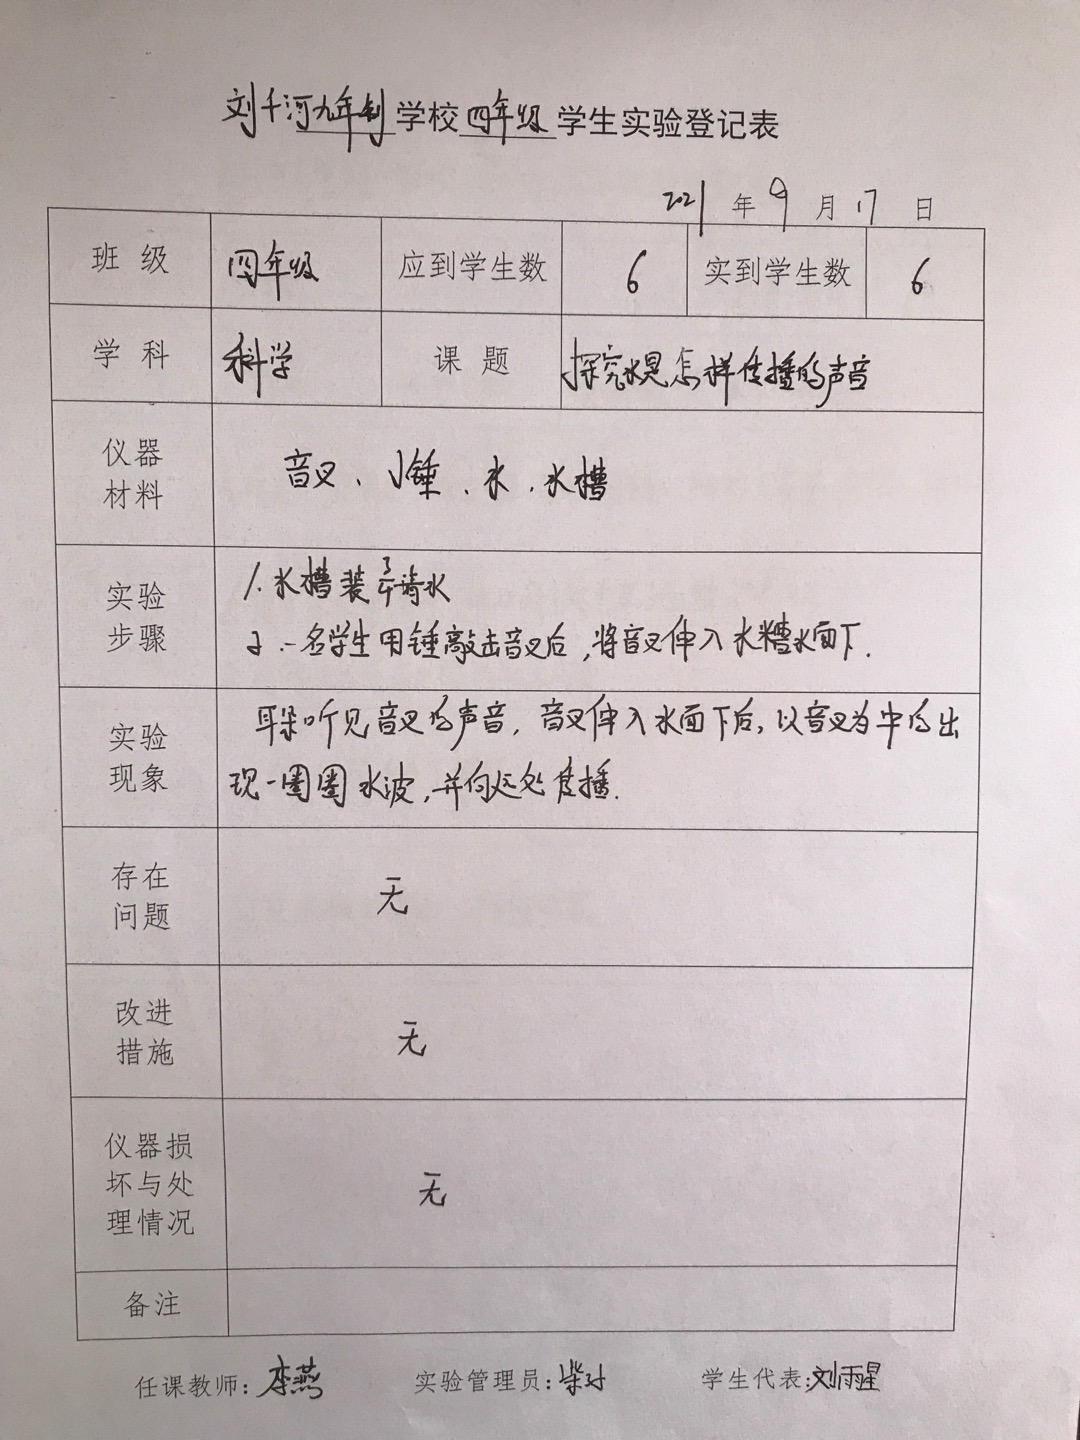 刘千河九年制学校四年级学生实验登记表
2021年9月17日
班级 四年级 应到学生数 6 实到学生数 6
学科 科学 课题 探究水是怎样传播的声音
仪器材料 音叉、小锤、水、水槽
实验步骤 1.水槽装半清水
2.一名学生用锤敲击音叉后,将音叉伸入水槽水面下.
实验现象 耳朵听见音叉的声音,音叉伸入水面下后,以音叉为中的出
现一圈圈水波,并向远处传播.
存在问题 无
改进措施 无
仪器损坏与处理情况 无
备注
任课教师:李燕 实验管理员:柴 学生代表:刘雨星